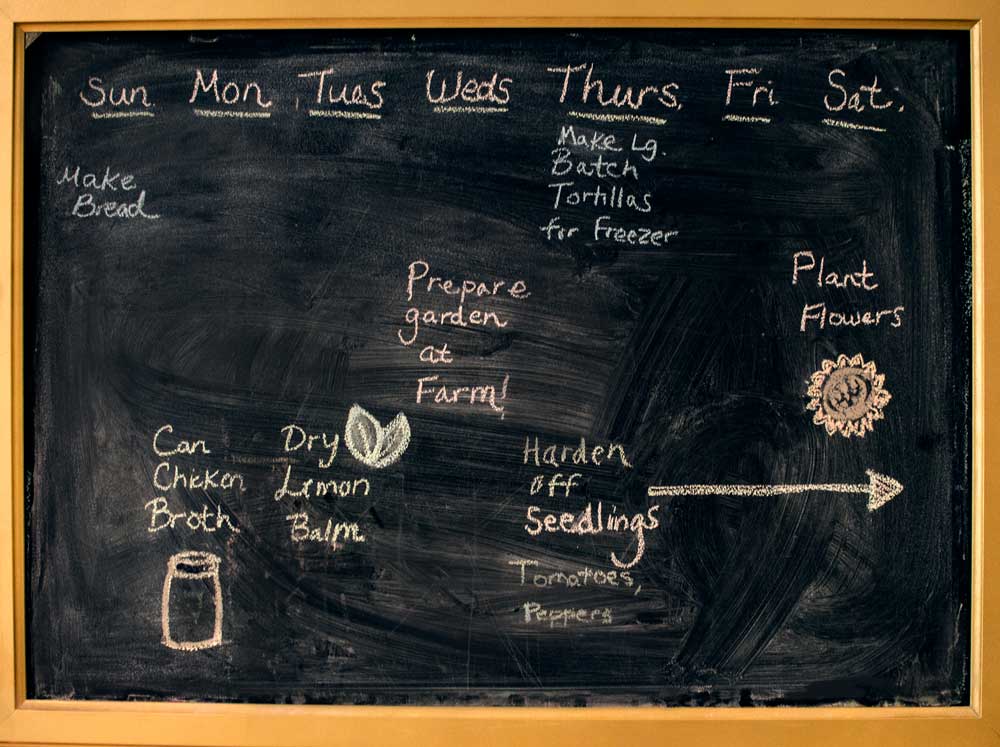 Sun. Mon Tues Weds Thurs. Fri Sat.
Make
Bread
Make Lg.
Batch
Tortillas
for Freezer
Prepare
garden
at
Farm!
Plant
Flowers
Can
Chicken
Broth
Dry
Lemon
Balm
Harden
off
Seedlings
Tomatoes,
Peppers